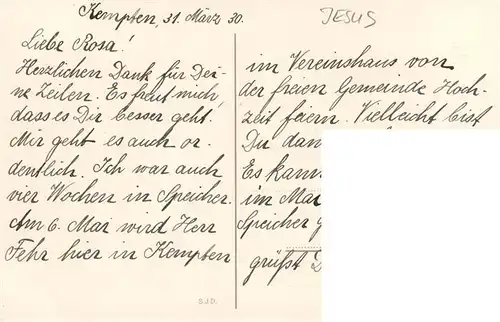 Kempten, 31. März 30.
JESUS
Liebe Rosa!
Herzlichen Dank für Dei-
ne Zeilen. Es freut mich,
dass es Dir besser geht.
Mir geht es auch or-
dentlich. Ich war auch
vier Wochen in Speicher.
Am 6. Mai wird Herr
Fehr hier in Kempten
im Vereinshaus von
der freien Gemeinde Hoch-
zeit feiern. Vielleicht bist
Du dan
Es kann
im Mai
Speicher g
grüsst D
S.J.D.